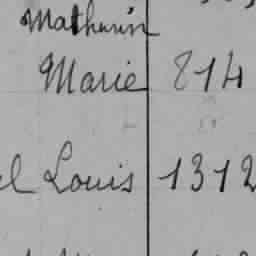 Mathurin
Marie 814
el Louis 1312